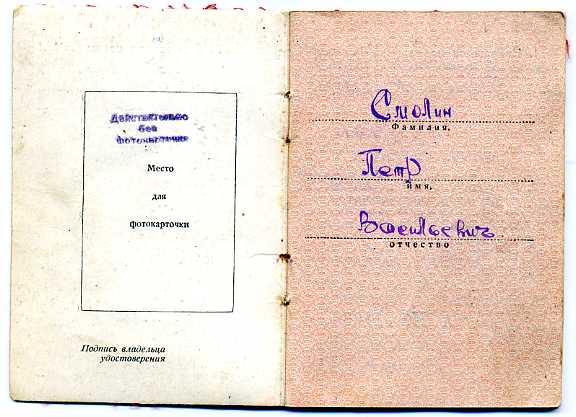 Действительно
без
фотокарточки
Место
для
фотокарточки
Подпись владельца
удостоверения
Смолин
Фамилия,
Петр
имя,
Васильевич
отчество